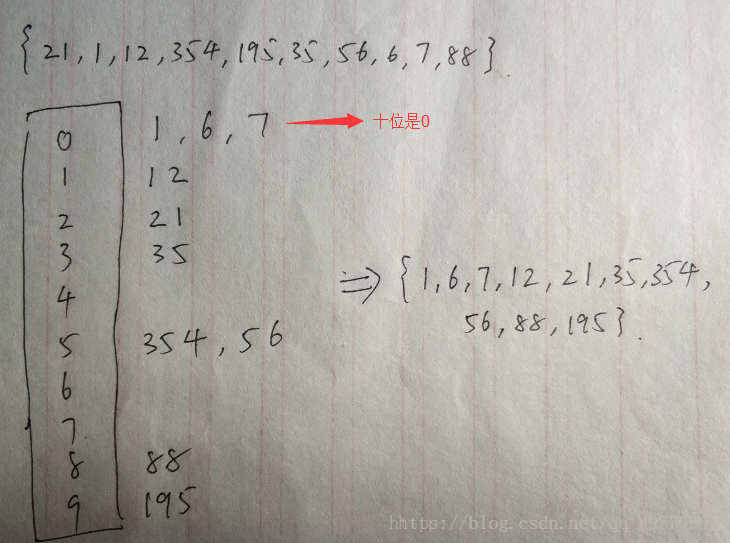 {21,1,12,354,195,35,56,6,7,88}.
0 1,6,7 十位是0
1 12
2 21
3 35
4
5 354,56
6
7
8 88
9 195
⇒ {1,6,7,12,21,35,354,
56,88,195}.
https://blog.csdn.net/